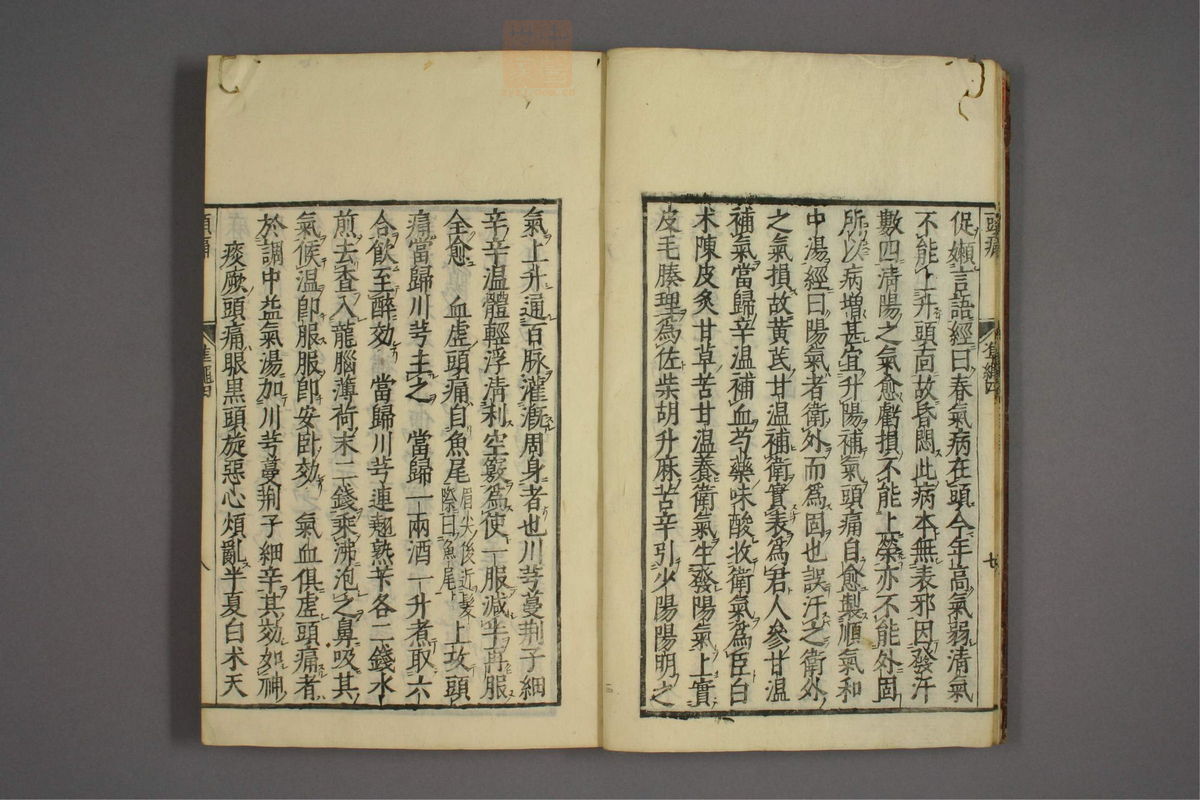 頭痛
促嬾言語經曰春氣病在頭今年高氣弱清氣
不能上升頭面故昏悶此病本無表邪因發汗
數四清陽之氣愈虧損不能上榮亦不能外固
所以病增甚宜升陽補氣頭痛自愈製順氣和
中湯經曰陽氣者衛外而爲固也誤汗之衛外
之氣損故黃芪甘温補衛實表爲君人參甘温
補氣當歸辛温補血芍藥味酸收衛氣爲臣白
术陳皮炙甘草苦甘温養衛氣生發陽氣上實
皮毛腠理爲佐柴胡升麻苦辛引少陽陽明之
氣上升通百脉灌漑周身者也川芎蔓荆子細
辛辛温體輕浮清利空竅爲使一服減半再服
全愈　血虛頭痛自魚尾眉尖後近髮際曰魚尾上攻頭
痛當歸川芎主之　當歸一兩酒一升煮取六
合飲至醉効　當歸川芎連翹熟苄各二錢水
煎去査入龍腦薄荷末二錢乘沸泡之鼻吸其
氣候温卽服服卽安臥効　氣血俱虛頭痛者
於調中益氣湯加川芎蔓荆子細辛其効如神
痰厥頭痛眼黑頭旋惡心煩亂半夏白术天
頭痛
八